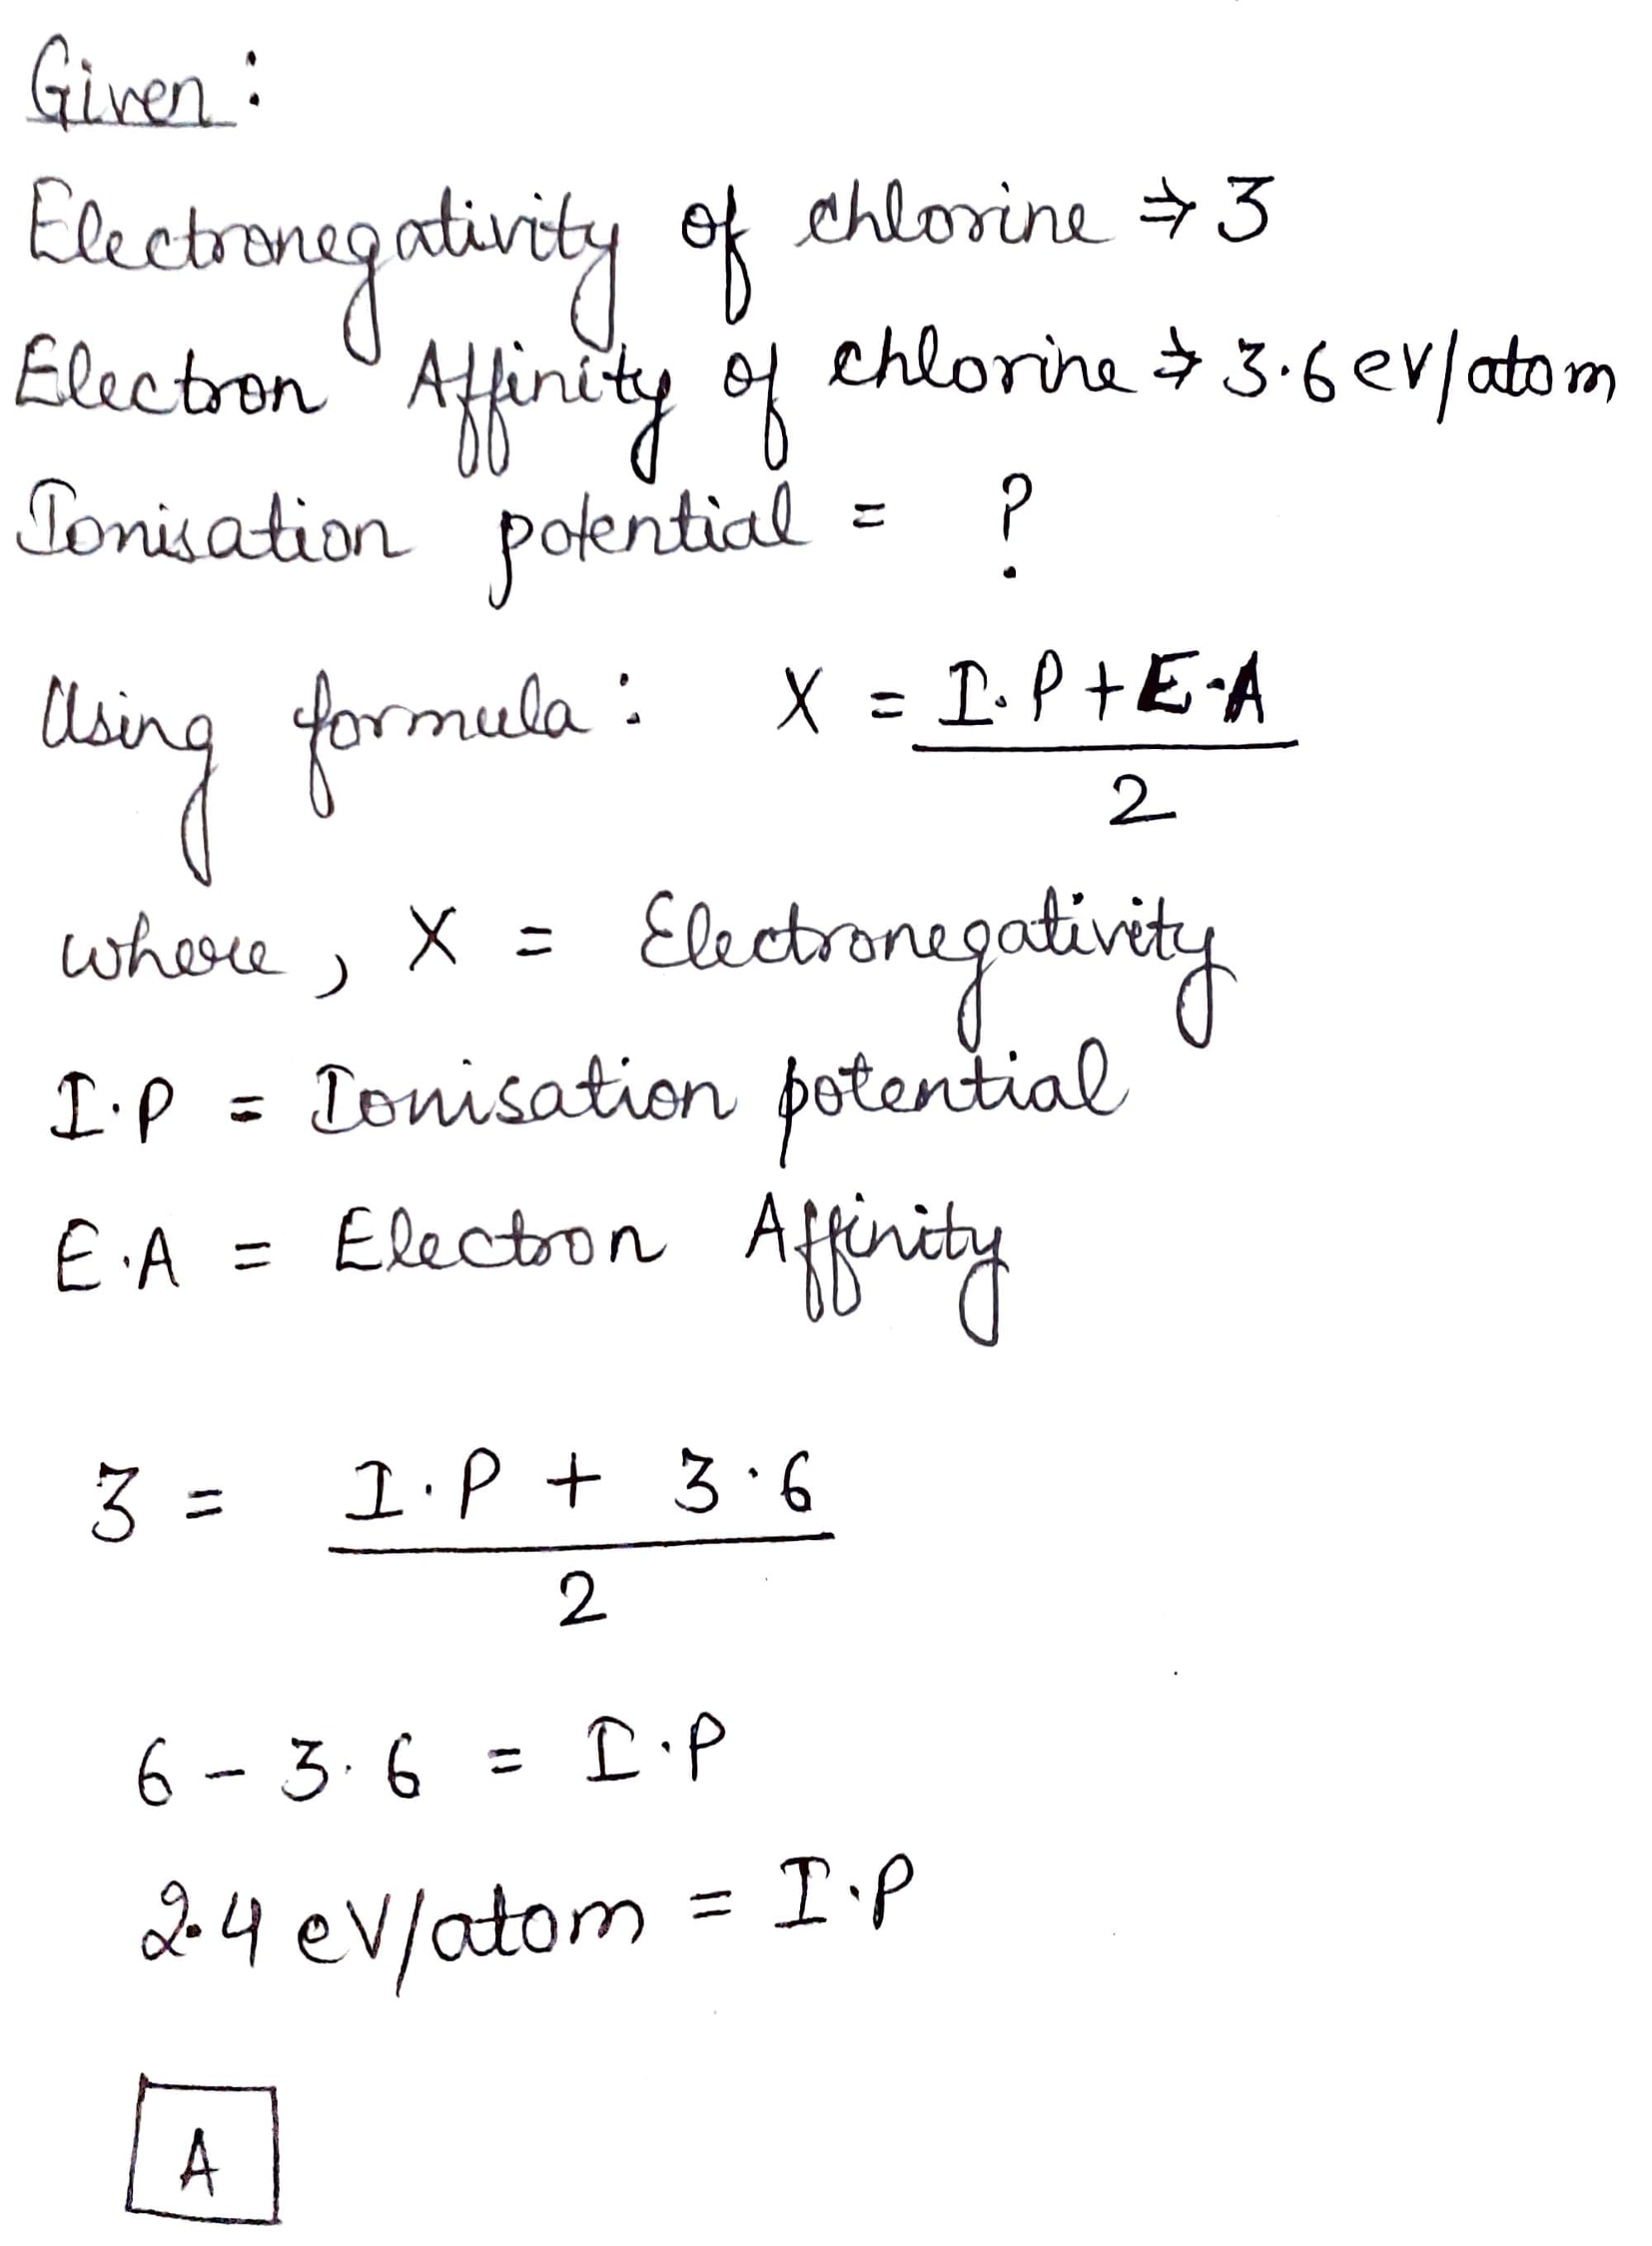 Given :
Electronegativity of chlorine ⇒ 3
Electron Affinity of chlorine ⇒ 3.6 eV/atom
Ionisation potential = ?
Using formula : X = I.P + E.A
2
where , X = Electronegativity
I.P = Ionisation potential
E.A = Electron Affinity
3 = I.P + 3.6
2
6 - 3.6 = I.P
2.4 eV/atom = I.P
A